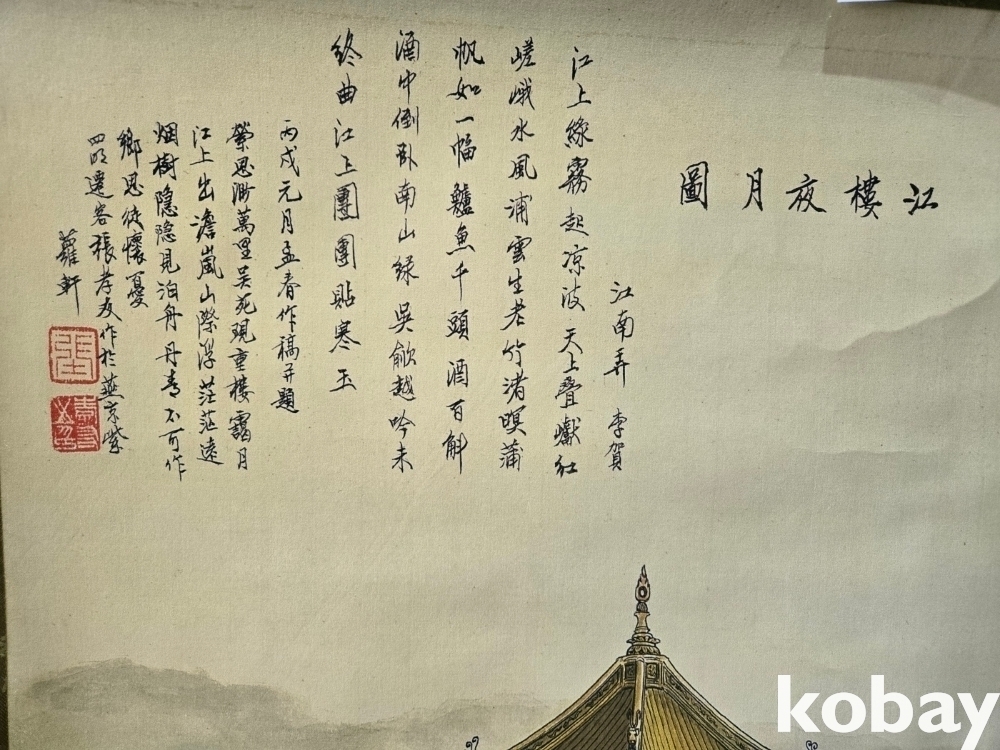 江樓夜月圖
江南弄 李賀
江上綠霧起凉波天上疊巘紅
嵯峨水風浦雲生老竹渚暝蒲
帆如一幅鱸魚千頭酒百斛
酒中倒卧南山綠吳歈越吟未
終曲江上團團貼寒玉
丙戌元月孟春作稿并題
縈思渺萬里吳苑現重樓靄月
江上出澹嵐山際浮茫茫遠
烟樹隱隱見泊舟丹青不可作
鄉思徒懷憂
四明遷客張孝友作於燕京紫
蘿軒
kobay